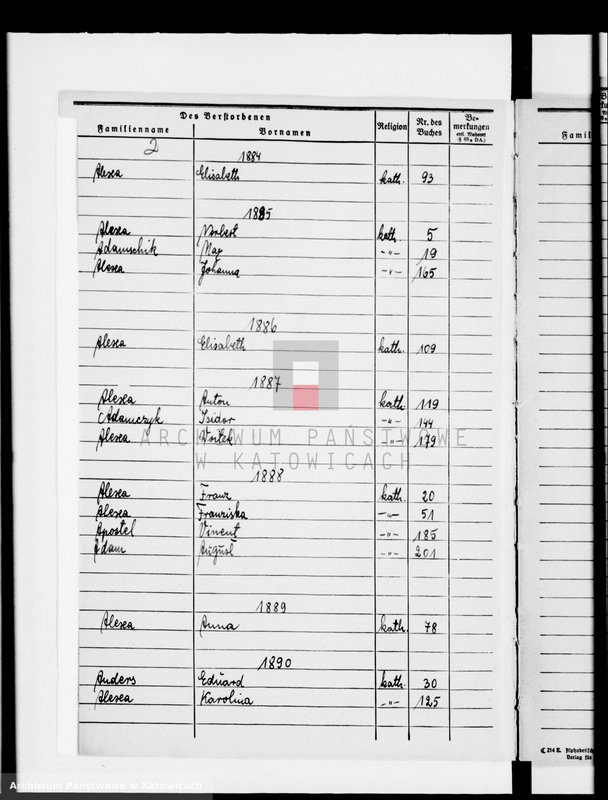 Des Verstorbenen
Familienname Vornamen Religion Nr. des Buches Be-merkungen evtl. Wohnort (§ 88a D.A.)
2
1884
Alexa Elisabeth kath. 93
1885
Alexa Norbert kath. 5
Adamschik Max -"- 19
Alexa Johanna -"- 165
1886
Alexa Elisabeth kath. 109
1887
Alexa Anton kath. 119
Adamczyk Isidor -"- 144
Alexa -"- 179
ARCHIWUM PAŃSTWOWE
W KATOWICACH
1888
Alexa Franz kath. 20
Alexa Franziska -"- 51
Apostel Vincent -"- 185
Adam August -"- 201
1889
Alexa Anna kath. 78
1890
Anders Eduard kath. 30
Alexa Karolina -"- 125
Famil
C 214 E. Alphabetisch
Verlag für
Archiwum Państwowe w Katowicach